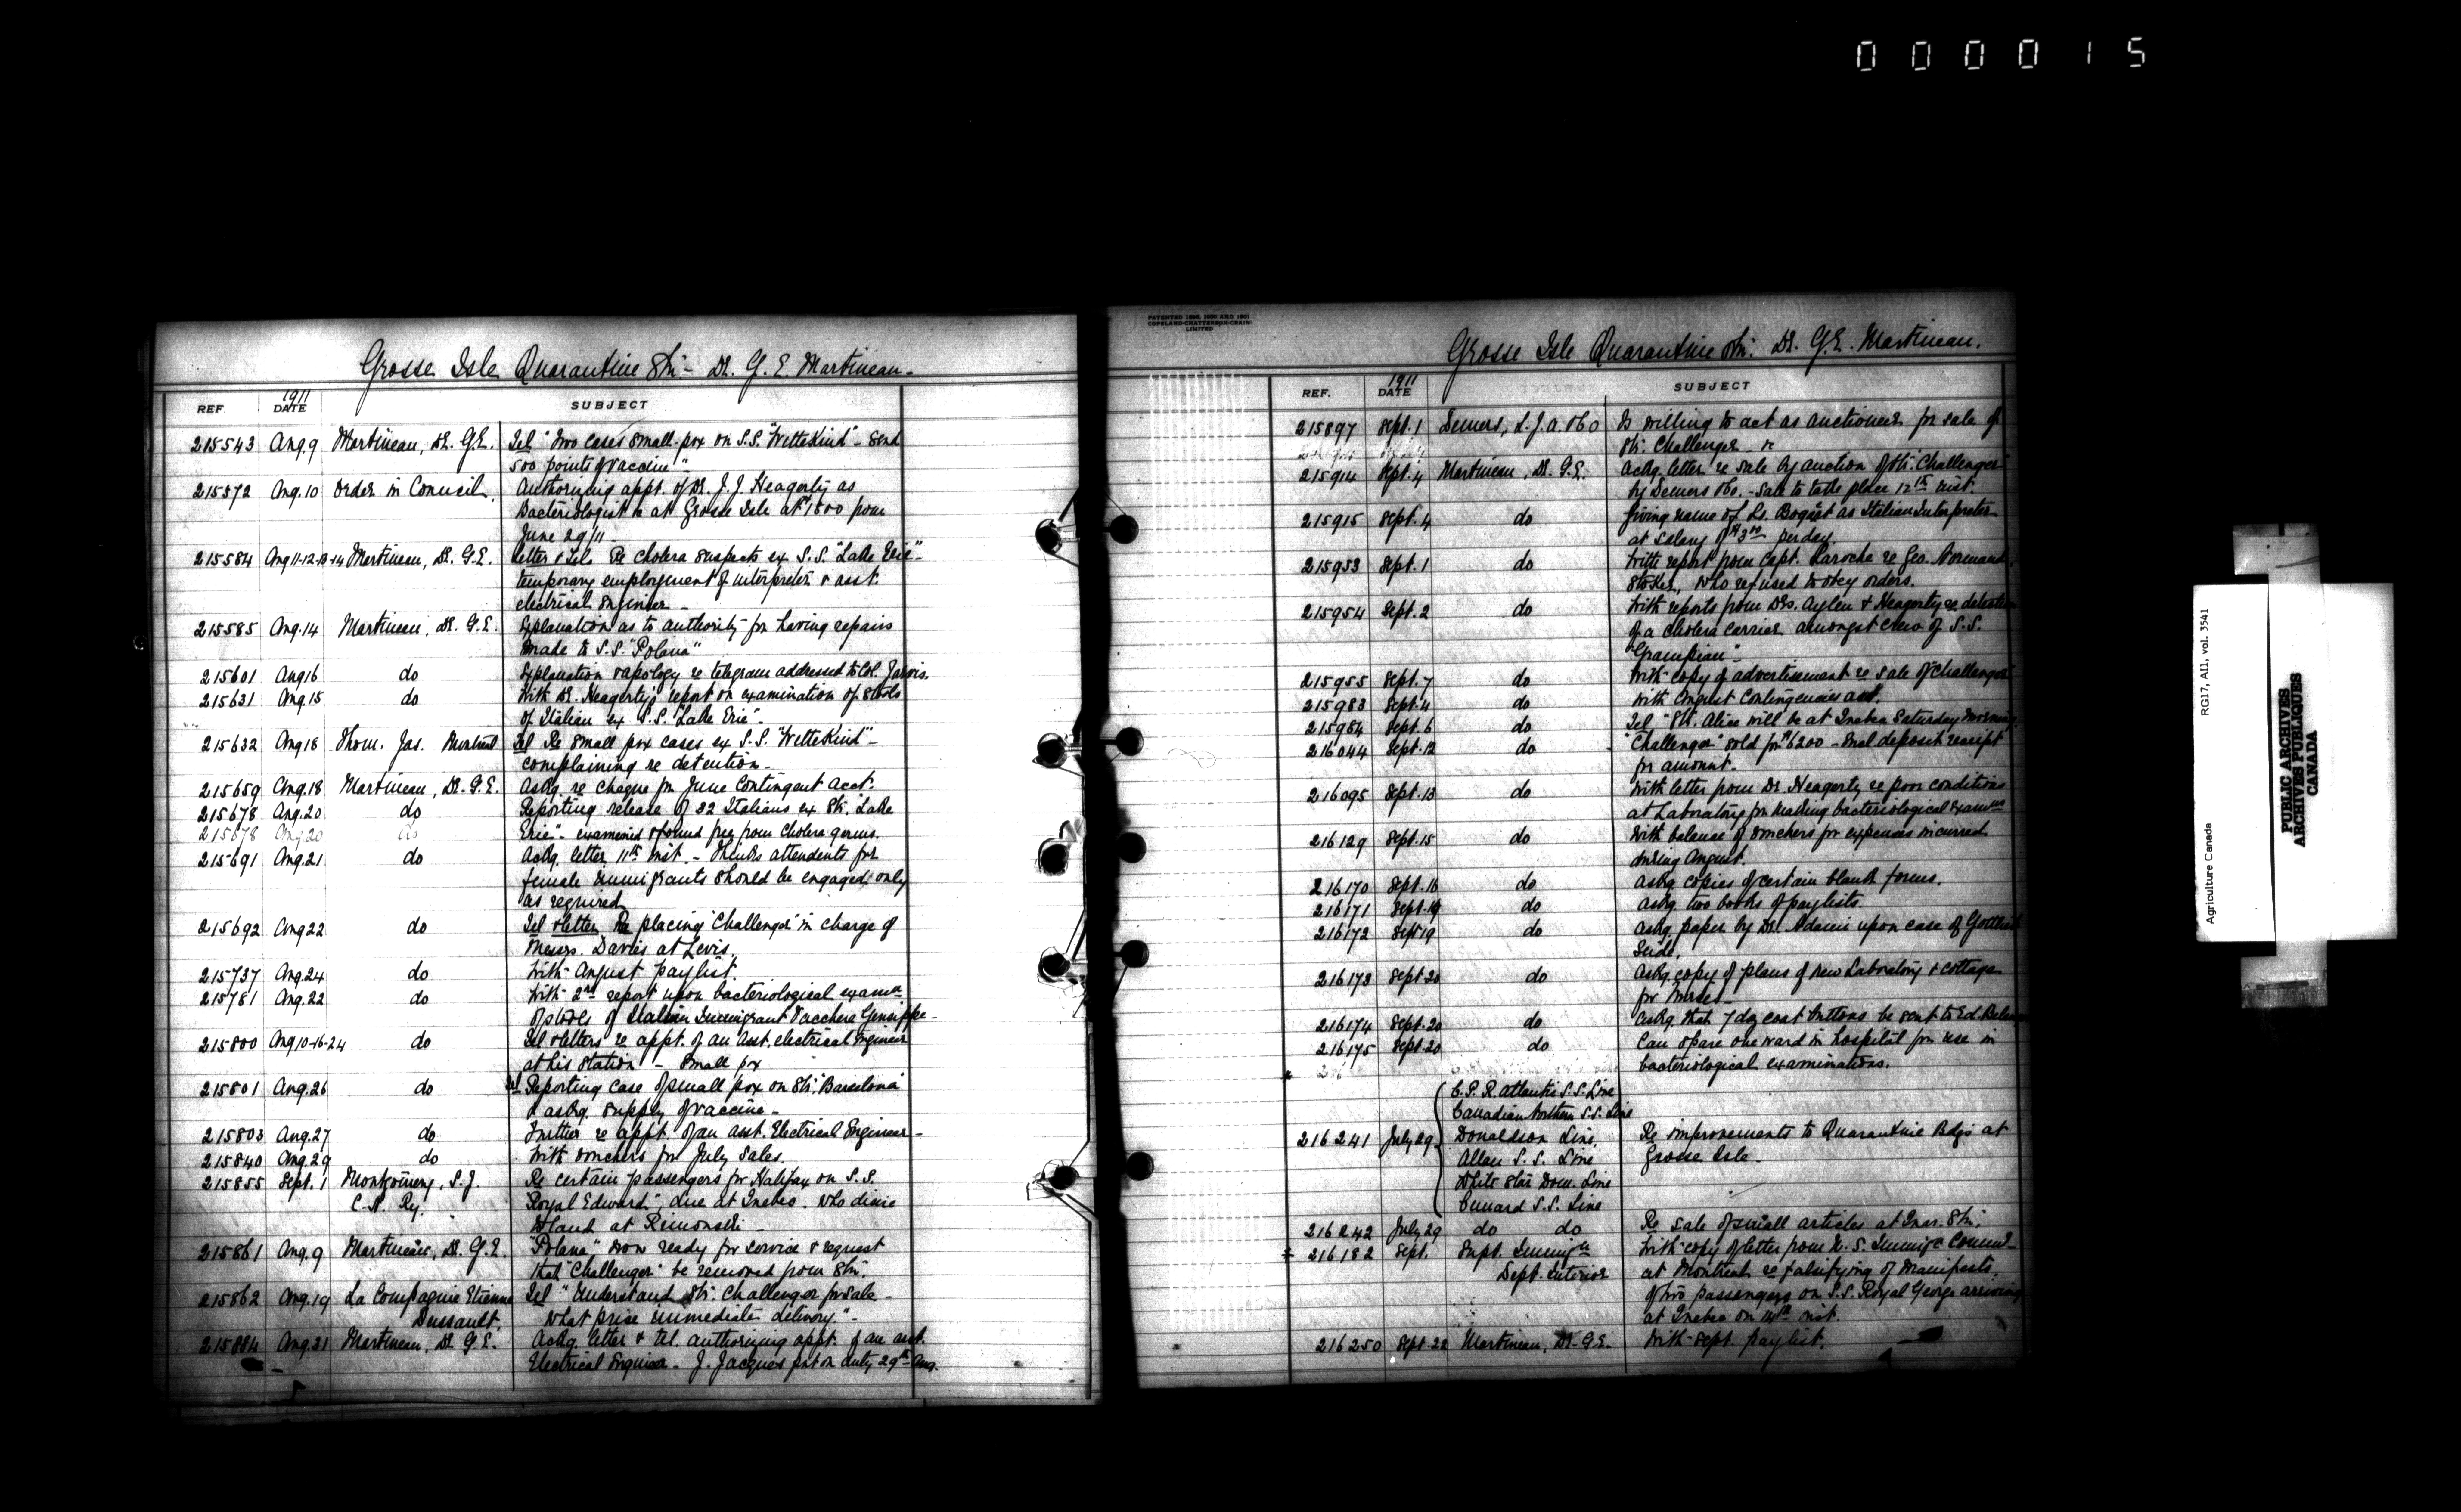 000015
Grosse Isle Quarantine Stn - Dr. G. E. Martineau -
REF. 1911 DATE SUBJECT
215543 Aug. 9 Martineau, Dr. G.E. Tel "Two cases small-pox on S.S. "WitteKind" - send
500 points of vaccine" -
215572 Aug. 10 Order in Council. Authorizing appt. of Dr. J. J. Heagerty as
Bacteriologist &c at Grosse Isle at $1800 from
June 29/11 -
215584 Aug 11-12-13-14 Martineau, Dr. G.E. Letter & Tels. Re cholera suspects ex S.S. "Lake Erie" -
temporary employment of interpreter & asst.
electrical Engineer -
215585 Aug. 14 Martineau, Dr. G.E. Explanation as to authority for having repairs
made to S.S. "Polana"
215601 Aug 16 do Explanation & apology re telegram addressed to Col. Jarvis.
215631 Aug. 15 do With Dr. Heagerty's report on examination of stools
of Italian ex S.S. "Lake Erie" -
215632 Aug 18 Thom. Jas. Montreal Tel Re small pox cases ex S.S. "WitteKind" -
complaining re detention -
215659 Aug. 18 Martineau, Dr. G.E. Askg. re cheque for June Contingent Acct.
215678 Aug. 20 do Reporting release of 32 Italians ex Str. "Lake
215678 Aug 20 do Erie" - examined & found free from cholera germs.
215691 Aug. 21 do Ackg. letter 11th inst. - Thinks attendents for
female immigrants should be engaged only
as required
215692 Aug 22 do Tel & letter Re placing "Challenger" in charge of
Messrs. Davies at Levis.
215737 Aug. 24 do With August paylist.
215781 Aug. 22 do With 2nd report upon bacteriological examn
of stools of Italian Immigrant Vacchera Genseppe -
215800 Aug 10-16-24 do Tel & letters re appt. of an Asst. electrical Engineer
at his Station - Small pox
215801 Aug. 26 do Tel Reporting case of small pox on Str. "Barcelona"
& askg. supply of vaccine -
215803 Aug. 27 do Further re appt. of an asst. Electrical Engineer -
215840 Aug. 29 do With vouchers for July Sales.
215855 Sept. 1 Montgomery, S.J. Re certain passengers for Halifax on S.S.
C.N. Ry. "Royal Edward", due at Quebec. Who desire
to land at Rimouski -
215861 Aug. 9 Martineau, Dr. G.E. "Polana" now ready for service & request
that "Challenger" be removed from Stn.
215862 Aug. 19 La Compagnie Etienne Tel "Understand Str. Challenger for sale -
Dussault. What price immediate delivery." -
215884 Aug. 31 Martineau, Dr. G.E. Ackg. letter & tel. authorizing appt. of an asst.
Electrical Engineer - J. Jacques put on duty 29th Aug.
PATENTED 1896, 1900 AND 1901
COPELAND-CHATTERSON-CRAIN
LIMITED
Grosse Isle Quarantine Stn. Dr. G.E. Martineau.
REF. 1911 DATE SUBJECT
215897 Sept. 1 Demers, L.J.A. & Co Is willing to act as auctioneer for sale of
Str. Challenger -
215914 Sept. 4 Martineau, Dr. G.E. Ackg. letter re sale by auction of Str. "Challenger"
by Demers & Co. - Sale to take place 12th inst.
215915 Sept. 4 do Giving name of Ls. Bogast as Italian Interpreter
at salary of $3.00 per day.
215953 Sept. 1 do With report from Capt. Laroche re Geo. Normand,
Stoker, who refused to obey orders.
215954 Sept. 2 do With reports from Drs. Aylen & Heagerty re detention
of a cholera carrier amongst crew of S.S.
"Grampian" -
215955 Sept. 7 do With copy of advertisement re sale of "Challenger"
215983 Sept. 4 do With August Contingencies acct.
215984 Sept. 6 do Tel "Str. Alice will be at Quebec Saturday morning"
216044 Sept. 12 do "Challenger" sold for $6200 - Encl deposit receipt
for amount.
216095 Sept. 13 do With letter from Dr. Heagerty re poor conditions
at Laboratory for making bacteriological examns
216129 Sept. 15 do With balance of vouchers for expenses incurred
during August.
216170 Sept. 16 do Askg. copies of certain blank forms.
216171 Sept. 19 do Askg. two books of paylists.
216172 Sept 19 do Askg. paper by Dr. Adami upon case of Gottlieb
Seide.
216173 Sept 20 do Askg. copy of plans of new Laboratory & cottage
for Nurses -
216174 Sept. 20 do Askg. that 7 doz coat buttons be sent to Ed.
216175 Sept. 20 do Can spare one ward in hospital for use in
bacteriological examinations.
C.P.R. Atlantic S.S. Line
Canadian Northern S.S. Line
216241 July 29 Donaldson Line. Re improvements to Quarantine Bdgs at
Allan S.S. Line Grosse Isle -
White Star Dom. Line
Cunard S.S. Line
216242 July 29 do do Re sale of small articles at Quar. Stn.
216182 Sept. Supt. Immign With copy of letter from U.S. Immign Commr -
Dept. Interior at Montreal re falsifying of Manifests.
of two passengers on S.S. Royal George arriving
at Quebec on 14th inst.
216250 Sept. 22 Martineau, Dr. G.E. With Sept. paylist.
Agriculture Canada RG17, A11, vol. 3541
PUBLIC ARCHIVES
ARCHIVES PUBLIQUES
CANADA